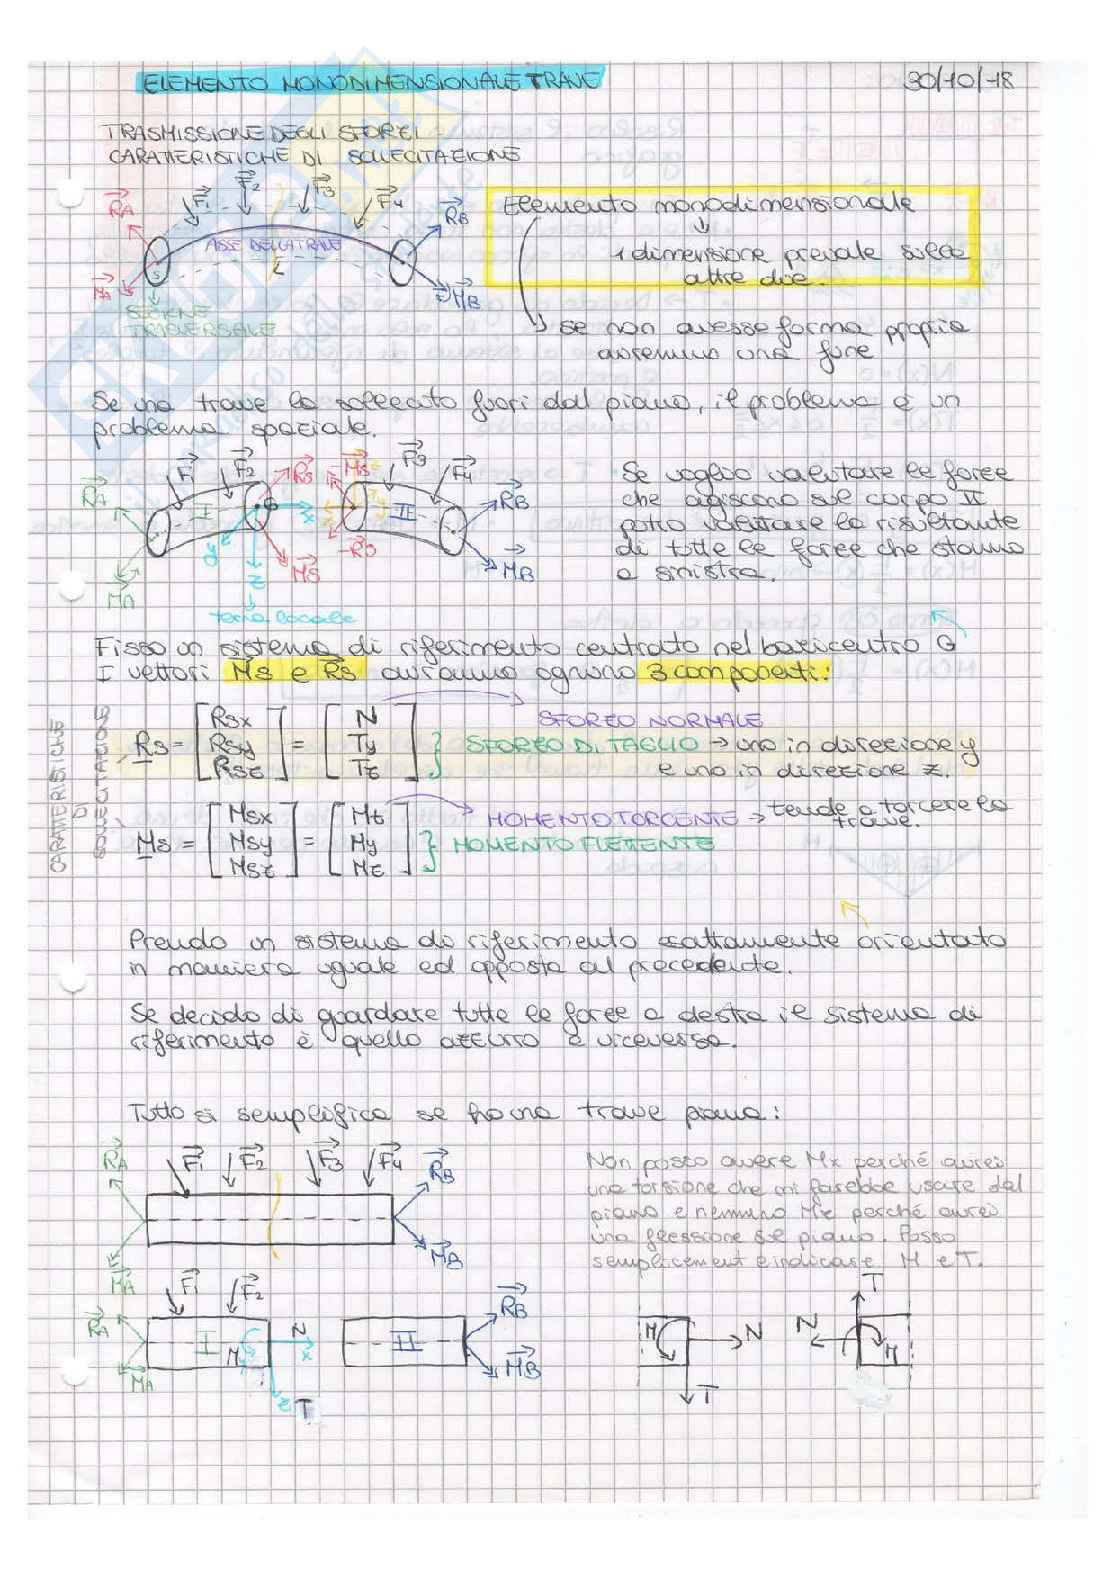 ELEMENTO MONODIMENSIONALE TRAVE 30/10/18
TRASMISSIONE DEGLI SFORZI
CARATTERISTICHE DI SOLLECITAZIONE
RA F1 F2 F3 F4 RB
ASSE DELLA TRAVE
S L
MA MB
SEZIONE
TRASVERSALE
Elemento monodimensionale
1 dimensione prevale sulle
altre due.
se non avesse forma propria
avremmo una fune
Se una trave la sollecito fuori dal piano, il problema è un
problema spaziale.
RA F1 F2 RS -MS F3 F4 RB
I G x II
y z MS -RS MB
MA
terna locale
Se voglio valutare le forze
che agiscono sul corpo II
potrò valutare la risultante
di tutte le forze che stanno
a sinistra.
Fisso un sistema di riferimento centrato nel baricentro G
I vettori Ms e Rs avranno ognuno 3 componenti:
CARATTERISTICHE
DI
SOLLECITAZIONE
Rs = [Rsx Rsy Rsz] = [N Ty Tz]
SFORZO NORMALE
SFORZO DI TAGLIO → uno in direzione y
e uno in direzione z.
Ms = [Msx Msy Msz] = [Mt My Mz]
MOMENTO TORCENTE → tende a torcere la
trave.
MOMENTO FLETTENTE
Prendo un sistema do riferimento esattamente orientato
in maniera uguale ed opposta al precedente.
Se decido di guardare tutte le forze a destra il sistema di
riferimento è quello azzurro e viceversa.
Tutto si semplifica se ho una trave piana:
RA F1 F2 F3 F4 RB
MA MB
Non posso avere Mx perché avrei
una torsione che mi farebbe uscire dal
piano e nemmeno Mz perché avrei
una flessione sul piano. Posso
semplicemente indicare M e T.
RA F1 F2 RB
I M N x II
MA z T MB
M N T
T N M